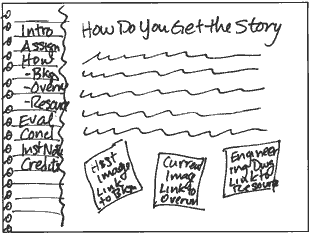 How Do You Get the Story
Intro
Assign
How
-Bkg
-Overv
-Resourc
Eval
Concl
Inst Note
Credits
Hist
Image
Link
to Bkgn
Current
Imag
Link to
Overvi
Engineer
ing Dwg
Link to
Resource